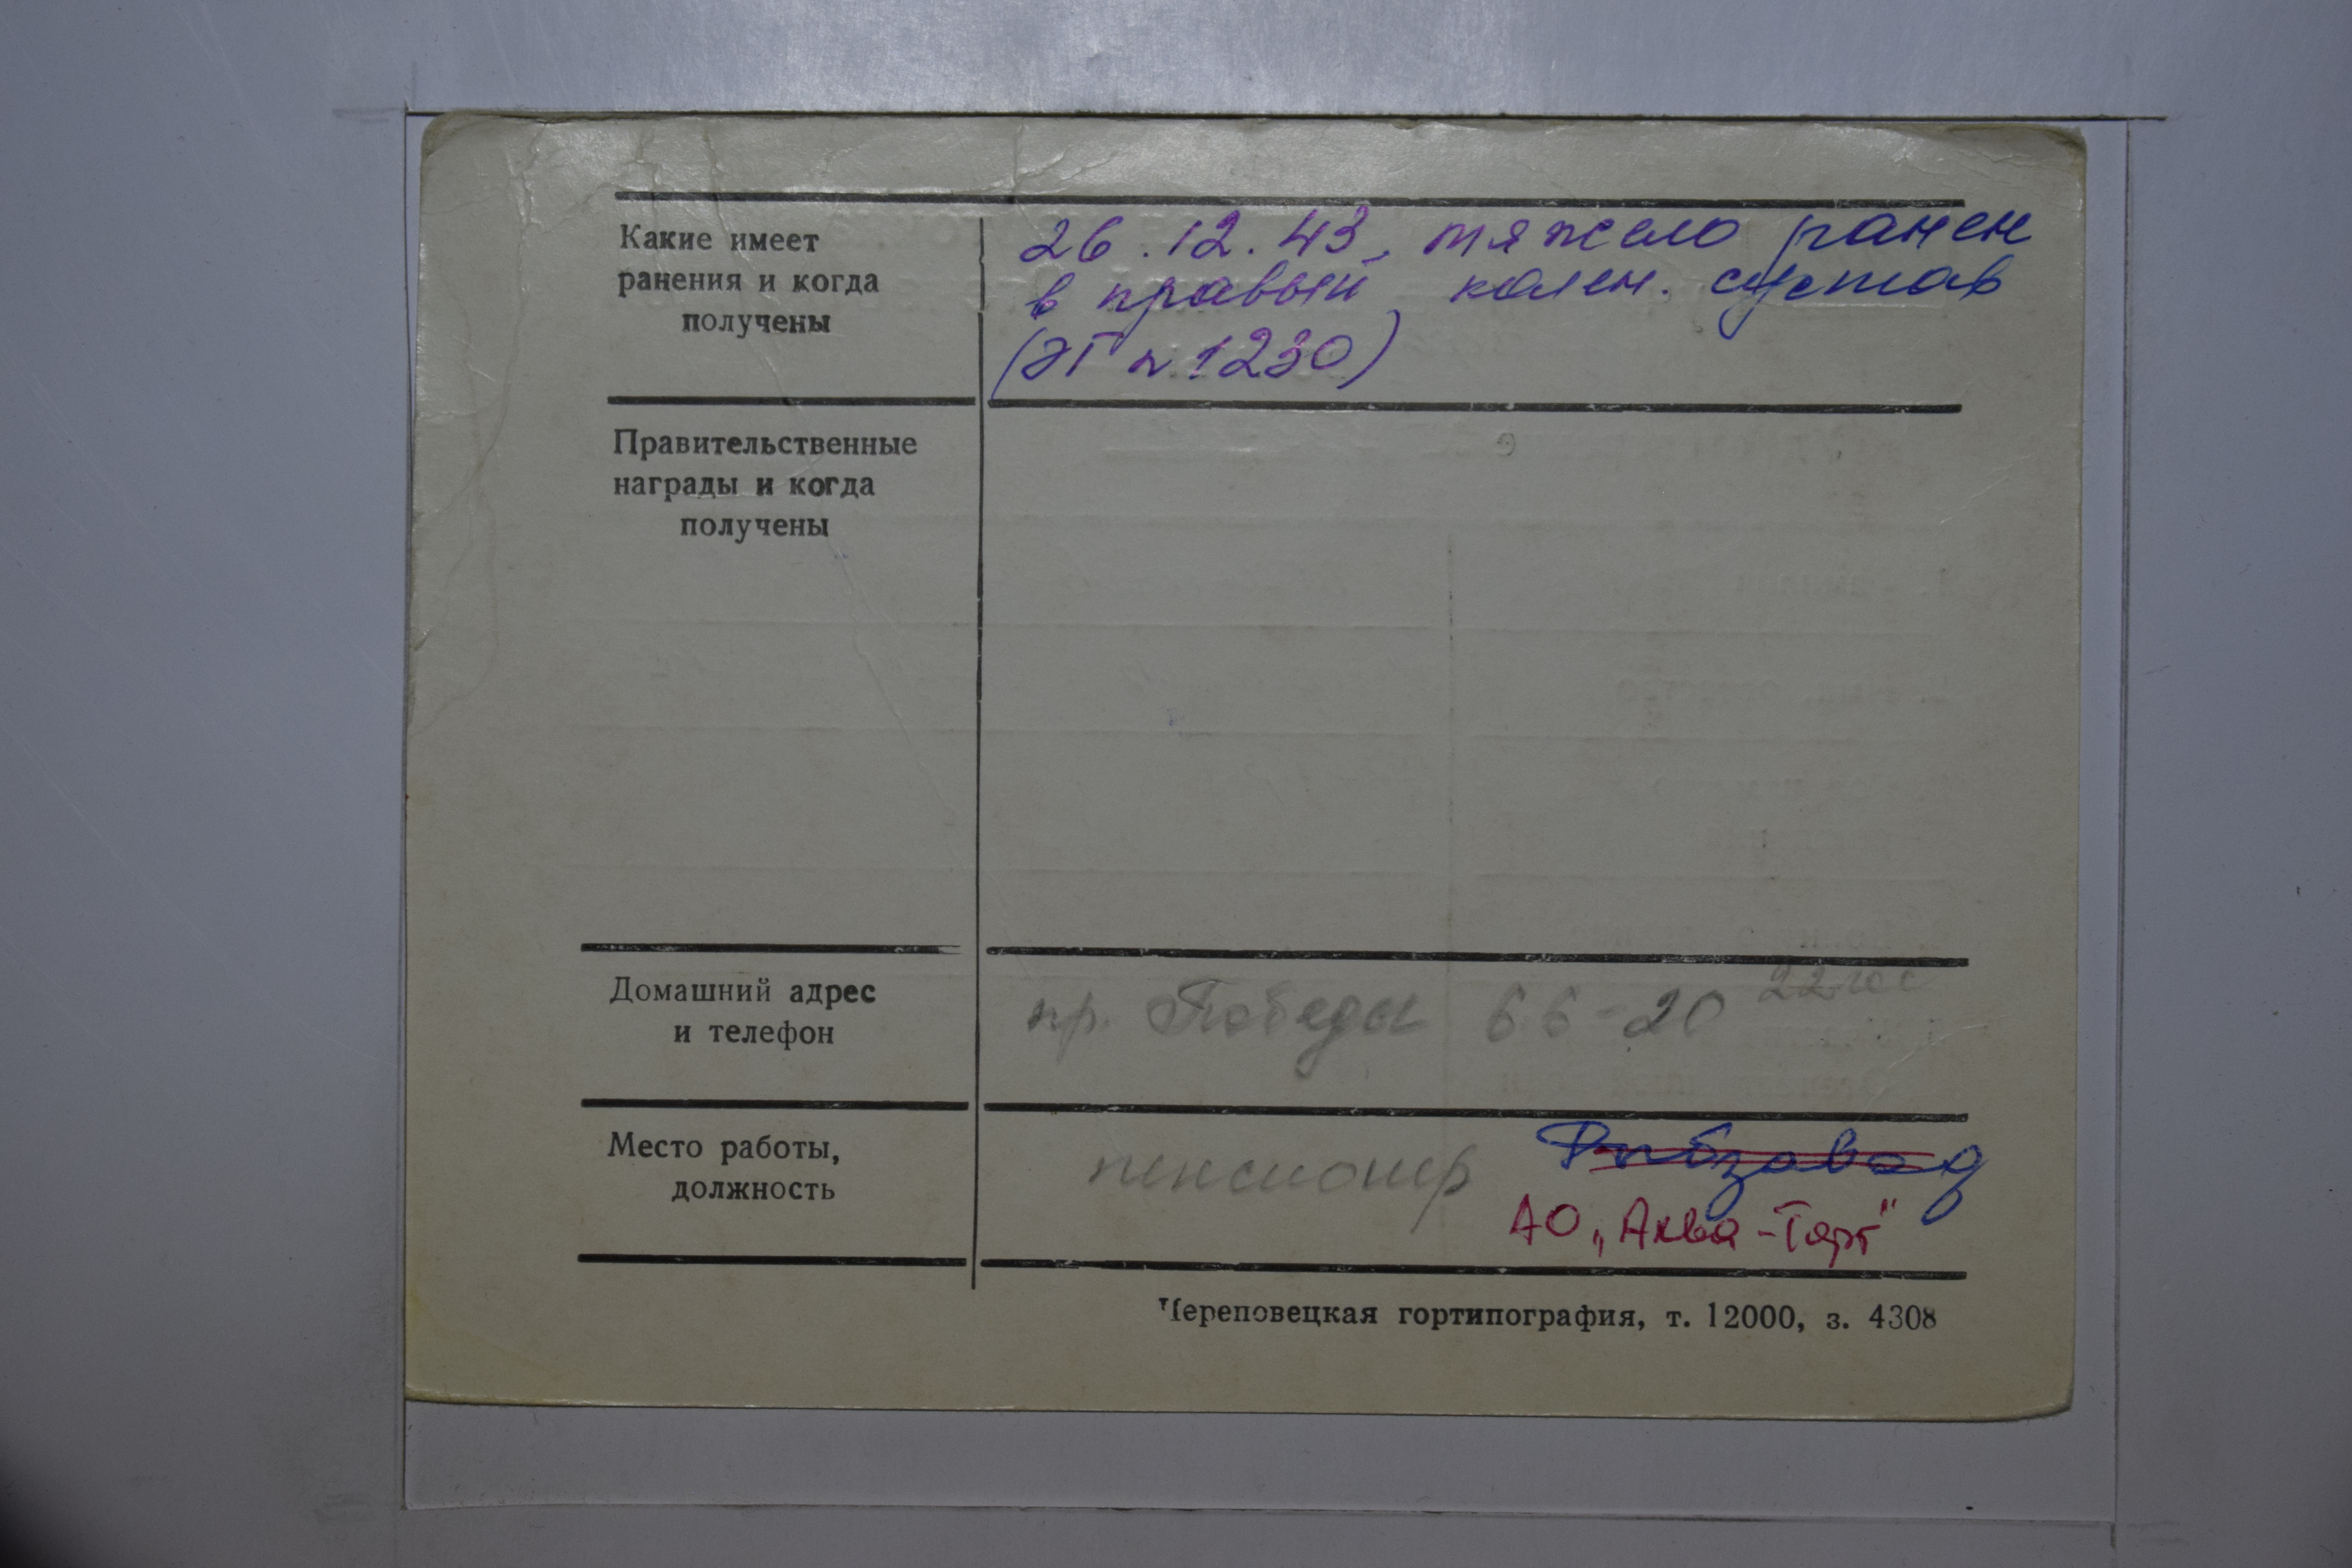 Какие имеет
ранения и когда
получены
26.12.43, тяжело ранен
в правый колен. сустав
(ЭГ N 1230)
Правительственные
награды и когда
получены
Домашний адрес
и телефон
пр. Победы 66-20
Место работы,
должность
пенсионер Рыбзавод
АО „Аква-Торг"
Череповецкая гортипография, т. 12000, з. 4308